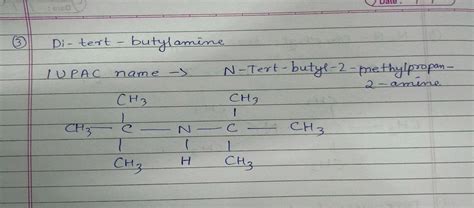 Date :
③ Di-tert-butylamine
IUPAC name → N-Tert-butyl-2-methylpropan-
2-amine
CH3 CH3
CH3 — C — N — C — CH3
CH3 H CH3